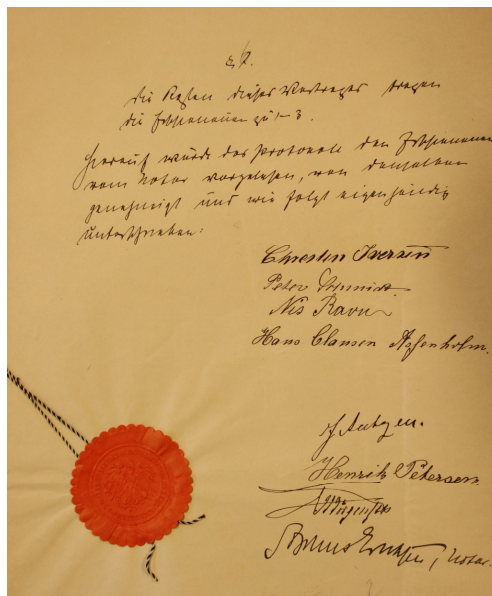 § 7.
Die Kosten dieses Vertrages tragen
die Erschienenen zu 1-3.
Hierauf wurde das Protokoll den Erschienenen
vom Notar vorgelesen, von denselben
genehmigt und wie folgt eigenhändig
unterschrieben:
Chresten Iversen
Peter Schmidt
Nis Ravn
Hans Clausen
Henrik Petersen
Notar.